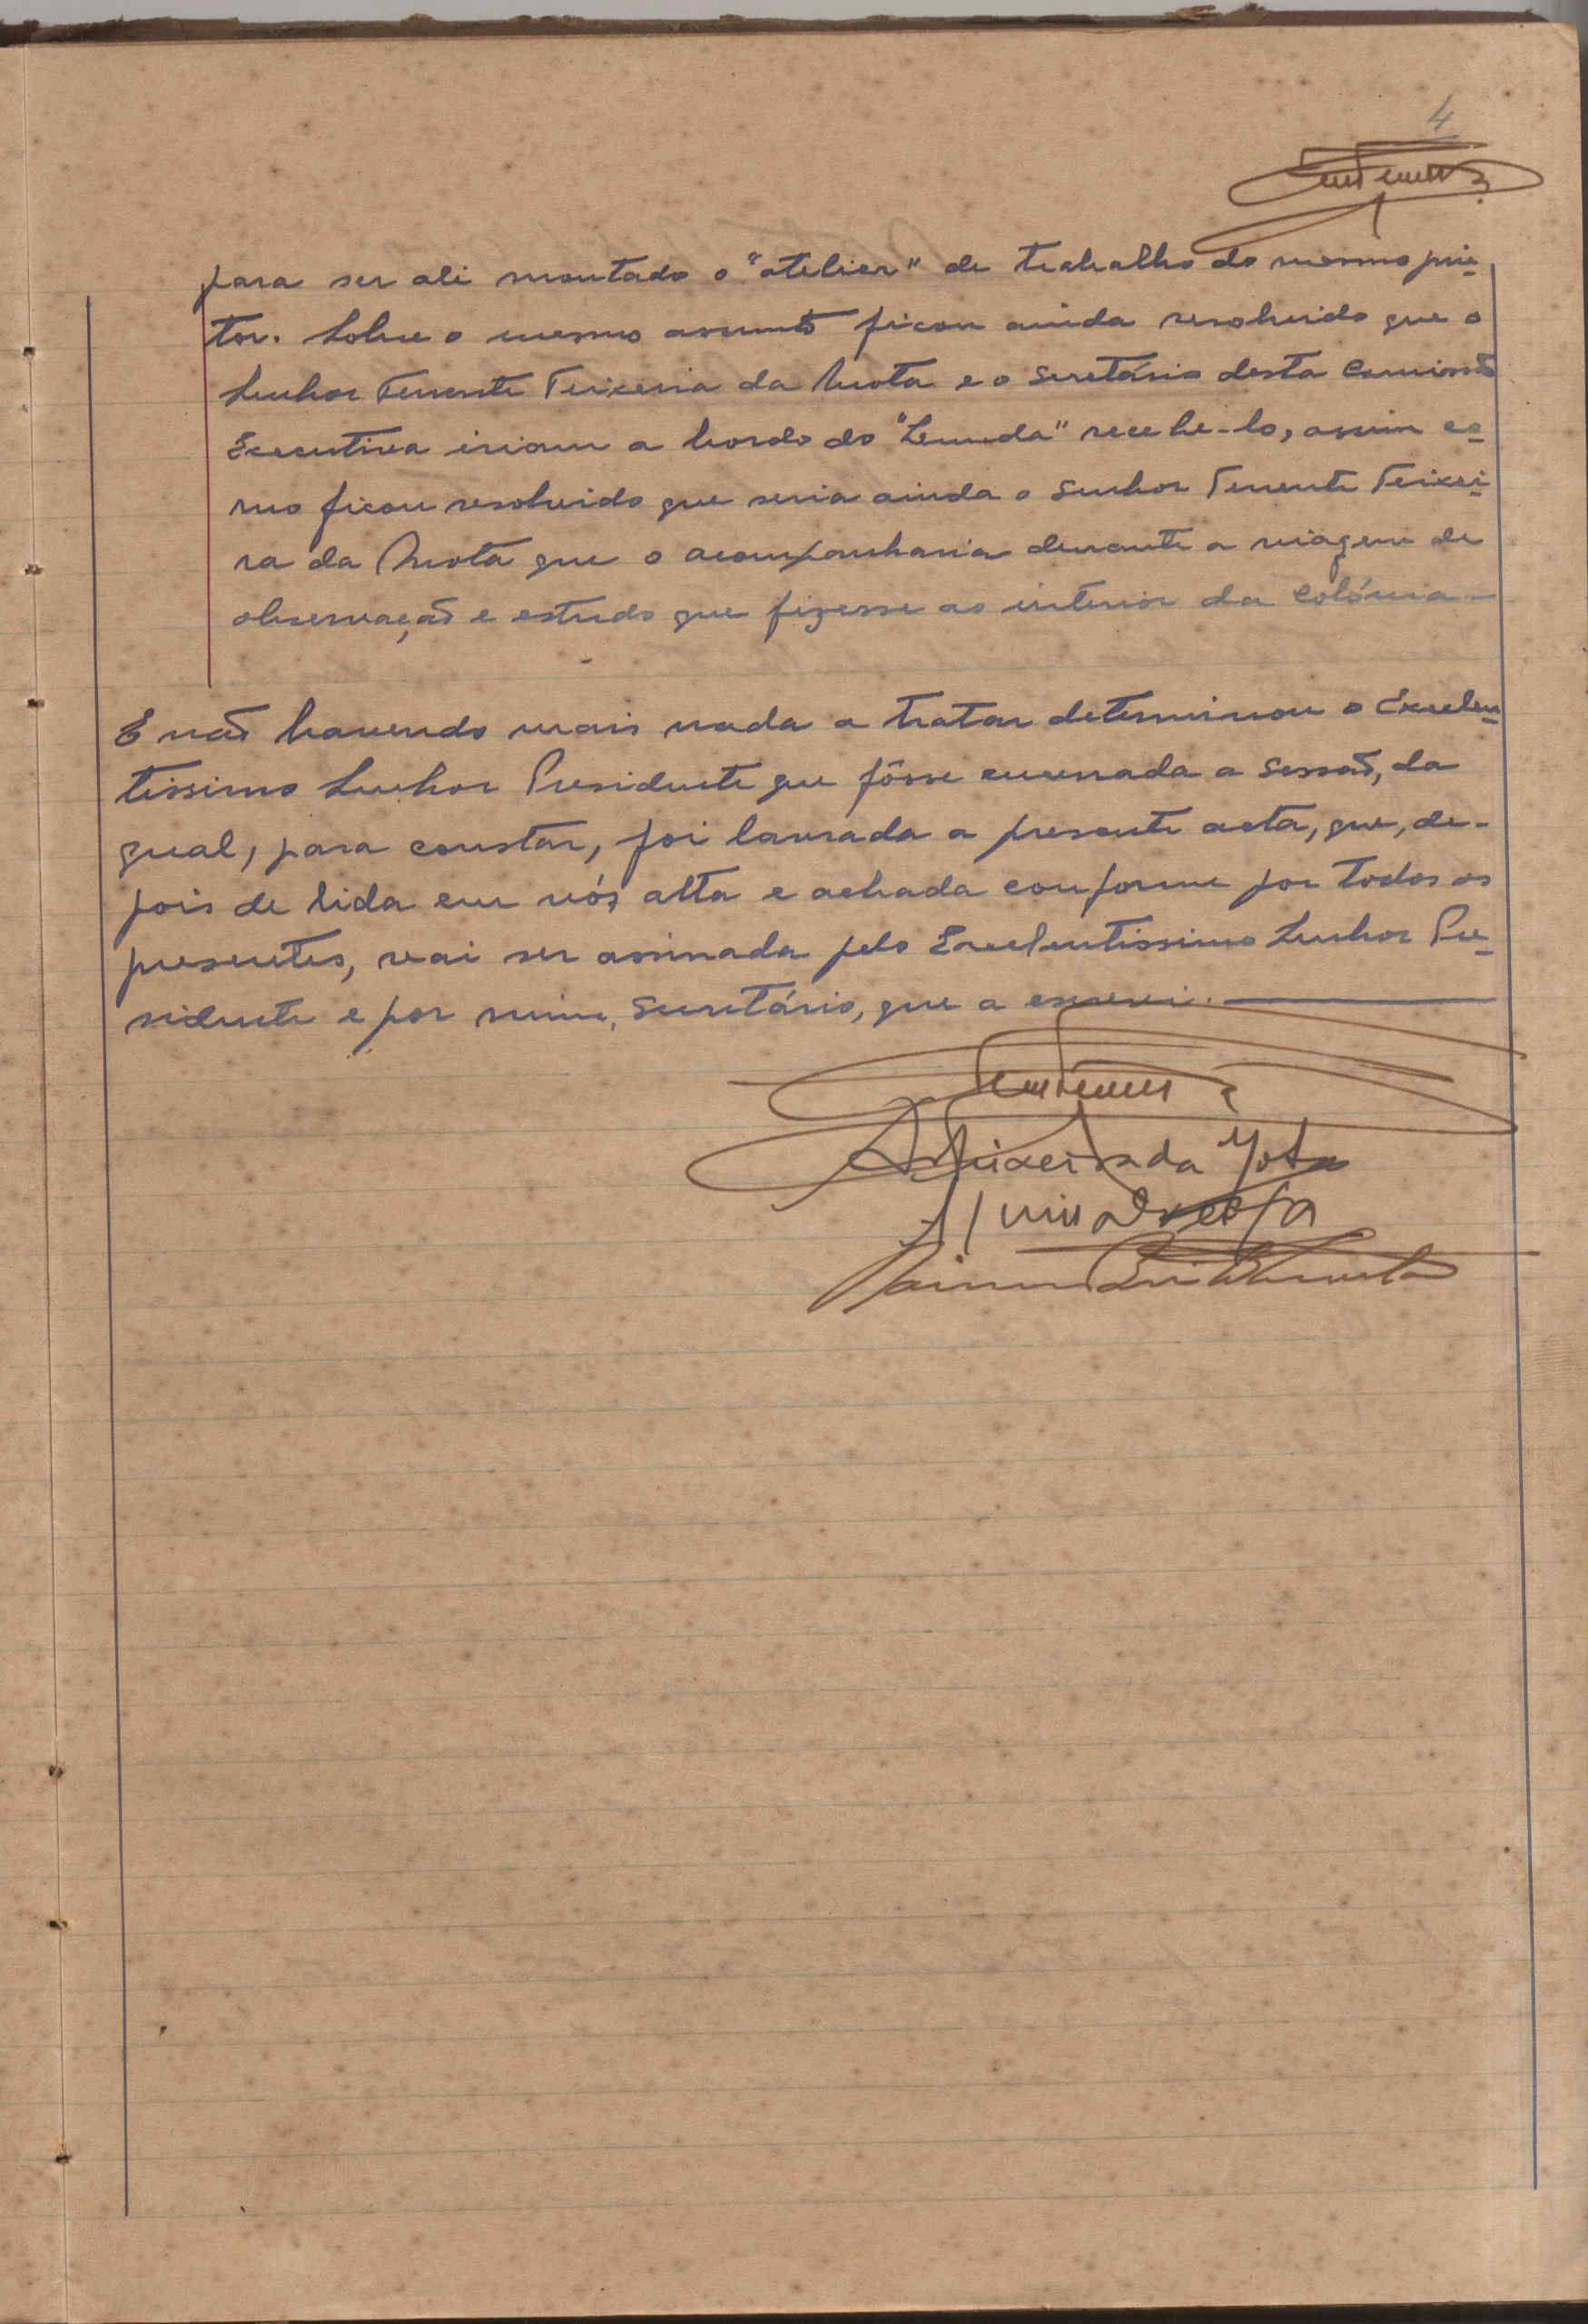 4
para ser ali montado o "atelier" de trabalho do mesmo pin-
tor. Sobre o mesmo assunto ficou ainda resolvido que o
Senhor Tenente Teixeira da Mota e o Secretário desta Comissão
Executiva iriam a bordo do recebe-lo, assim co-
mo ficou resolvido que seria ainda o Senhor Tenente Teixei-
ra da Mota que o acompanharia durante a viagem de
observação e estudo que fizesse ao interior da Colónia-
E não havendo mais nada a tratar determinou o Excelen-
tissimo Senhor Presidente que fôsse encerrada a sessão, da
qual, para constar, foi lavrada a presente acta, que, de-
pois de lida em vóz alta e achada conforme por todos os
presentes, vai ser assinada pelo Excelentissimo Senhor Pre-
sidente e por mim, Secretário, que a escrevi.
Teixeira da Mota